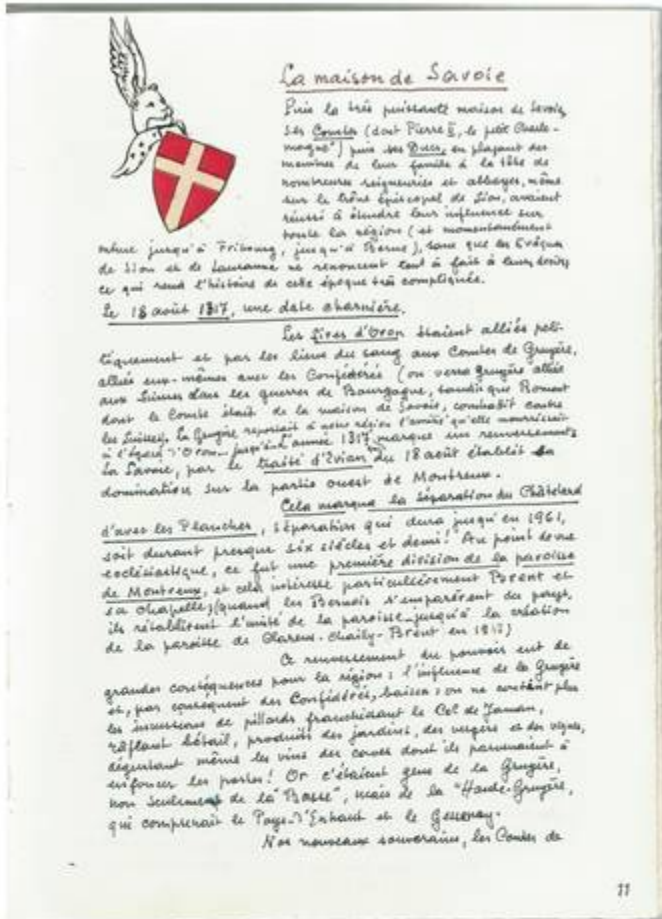 La maison de Savoie
Puis la très puissante maison de Savoie,
ses Comtes (dont Pierre II, le petit Charle-
magne") puis ses Ducs, en plaçant des
membres de leur famille à la tête de
nombreuses seigneuries et abbayes, même
sur le trône épiscopal de Sion, avaient
réussi à étendre leur influence sur
toute la région (et momentanément
même jusqu'à Fribourg, jusqu'à Berne), sans que les Evêques
de Sion et de Lausanne ne renoncent tout à fait à leurs droits,
ce qui rend l'histoire de cette époque très compliquée.
Le 18 août 1317, une date charnière.
Les sires d'Oron étaient alliés poli-
tiquement et par les liens du sang aux Comtes de Gruyère,
alliés eux-mêmes avec les Confédérés (on verra Gruyère alliée
aux Suisses dans les guerres de Bourgogne, tandis que Romont
dont le Comte était de la maison de Savoie, combattit contre
les Suisses). La Gruyère reportait à notre région l'amitié qu'elle nourrissait
à l'égard d'Oron... jusqu'à l'année 1317 marque un renversement,
La Savoie, par le traité d'Evian du 18 août établit sa
domination sur la partie ouest de Montreux.
Cela marque la séparation du Châtelard
d'avec les Planches, séparation qui dura jusqu'en 1961,
soit durant presque six siècles et demi! Au point de vue
ecclésiastique, ce fut une première division de la paroisse
de Montreux, et cela intéresse particulièrement Brent et
sa chapelle; (quand les Bernois s'emparèrent du pays,
ils rétablirent l'unité de la paroisse jusqu'à la création
de la paroisse de Clarens-Chailly-Brent en
Ce renversement du pouvoir eut de
grandes conséquences pour la région: l'influence de la Gruyère
et, par conséquent des Confédérés, baissa: on ne contint plus
les incursions de pillards franchissant le Col de Jaman,
râflant bétail, produits des jardins, des vergers et des vignes,
dégustant même les vins des caves dont ils parvenaient à
enfoncer les portes! Or c'étaient gens de la Gruyère,
non seulement de la "Basse", mais de la "Haute-Gruyère,
qui comprenait le Pays-d'Enhaut et le Gessenay.
Nos nouveaux souverains, les Comtes de
11